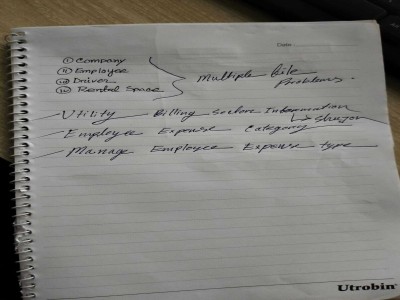 Date
(i) Company
(ii) Employee
(iii) Driver
(iv) Rental Space
Multiple file
Problems.
Utility Billing Information
Employee Expense Category
Manage Employee Expense type
Utrobin